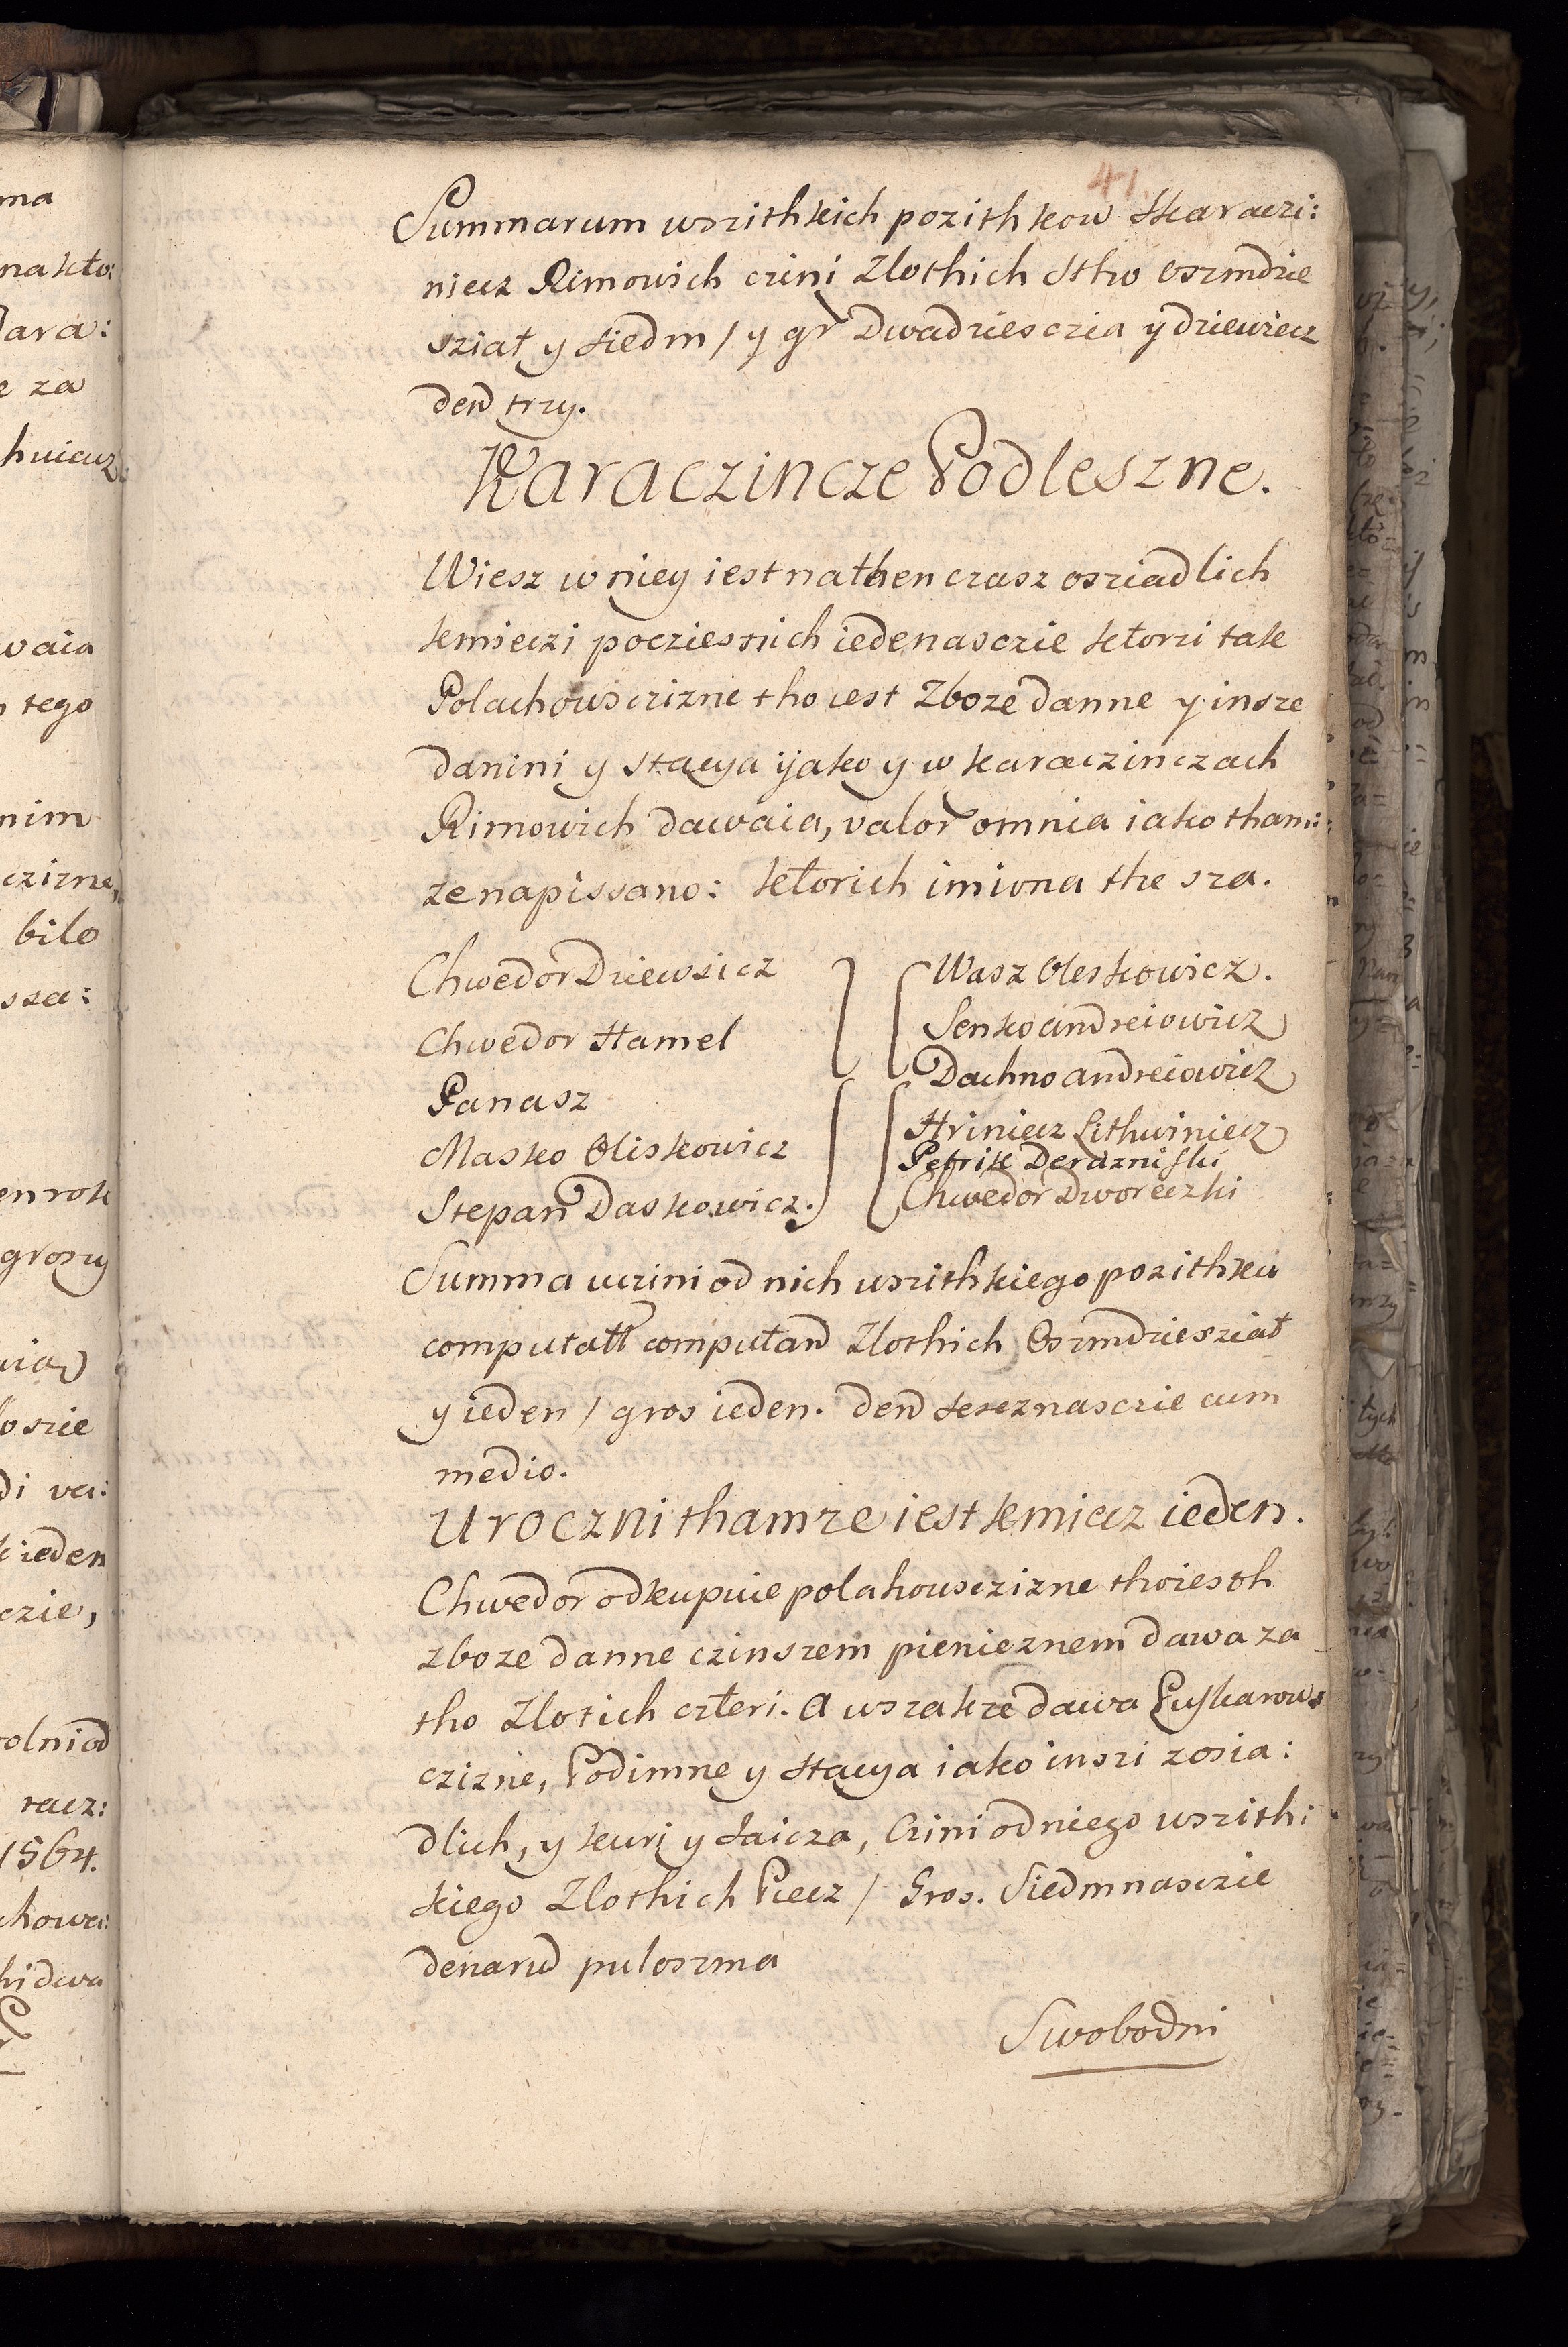 41
Summarum wszithkich pozithkow Karaczi:
niecz Rimowich czini Zlothich Stho oszmdzie
sziat y siedm / y gr Dwadziesczia y dziewiecz
den trzy.
Karaczincze Podleszne.
Wiesz w niey iest nathen czasz osziadlich
kmieczi pocziesnich iedenasczie ktorzi tak
Polachowsczizne tho iest Zboze danne y insze
danini y stacya ijako y w karaczinczach
Rimowich dawaia, valor omnia iako tham:
ze napissano: ktorich imiona the sza.
Chwedor Dziewsicz
Chwedor Hamel
Panasz
Masko Oliskowicz
Stepan Daskowicz.
Wasz Oleskowicz.
Senko andreiowicz
Dachno andreiowicz
Hriniecz Lithwiniecz
Petrik Derazniski
Chwedor Dworeczki
Summa uczini od nich wszithkiego pozithku
computatt computand Zlothich Oszmdziesziat
y ieden / gros ieden. den sesznasczie cum
medio.
Uroczni thamze iest kmiecz ieden.
Chwedor odkupuie polahowsczizne thoiesth
zboze danne czinszem pienieznem dawa za
tho Zlotich czteri. A wszakze dawa Puskarows
czizne, Podimne y stacya iako inszi zosia:
dlich, y kuri y Iaicza, Czini od niego wszith:
kiego Zlothich Piecz / Gros. Siedmnasczie
denard puloszma
Swobodni
ma
na kto:
dara:
e za
waia
tego
nim
czizne,
bilo
ssa:
en rok
groszy
ieden
czie,
1564.